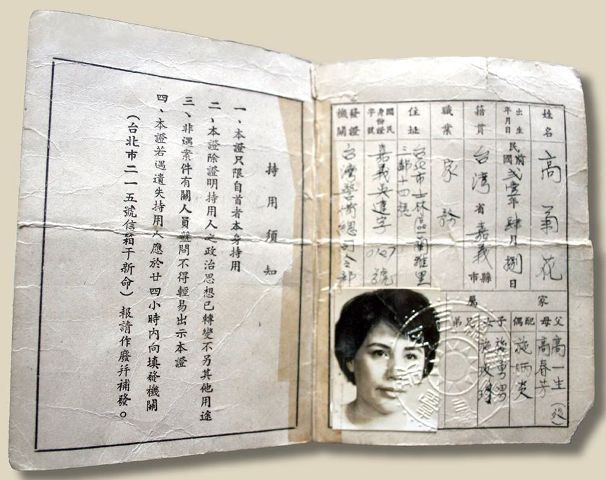 姓名 高菊花
出生年月日 民國 年肆月捌日
籍貫 台灣省嘉義縣市
職業 家務
住址 台北市士林區蘭雅里
三鄰十四號
國民身份證字號 嘉義吳達字 號
發證機關 台灣警備總司令部
家屬
父 高一生(歿)
母 高春芳
配偶 施
子女
兄弟
持用須知
一、本證只限自首者本身持用
二、本證除證明持用人之政治思想已轉變不另其他用途
三、非遇案件有關人員查問不得輕易出示本證
四、本證若遇遺失持用人應於廿四小時內向填發機關
(台北市二一五號信箱于新命)報請作廢幷補發。